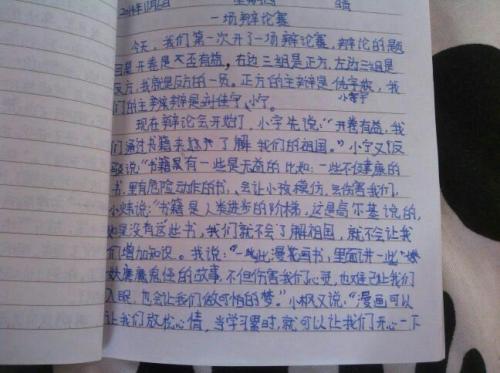 一场辩论赛
今天，我们第一次开了一场辩论赛，辩论的题
目是开卷是不是有益，右边三组是正方，左边三组是
反方，我就是反方的一员。正方的主辩是
们的主辩是刘佳宁、小宁。
现在辩论会开始了，小宇先说："开卷有益，我
们通过书籍来了解我们的祖国。"小宁又反
驳说："书籍是有一些是无益的比如：一些不健康的
书，里有危险动作的书，会让小孩模仿，会伤害我们，
说："书籍是人类进步的阶梯，这是高尔基说的，
如果没有这些书，我们就不会了解祖国，就不会让我
们增加知识。我说："一些漫画书，里面讲一些
妖魔鬼怪的故事，不但伤害我们心灵，也难已让我们
入眠，也会让我们做可怕的梦。"小枫又说："漫画可以
让我们放松心情，当学习累时，就可以让我们开心一下